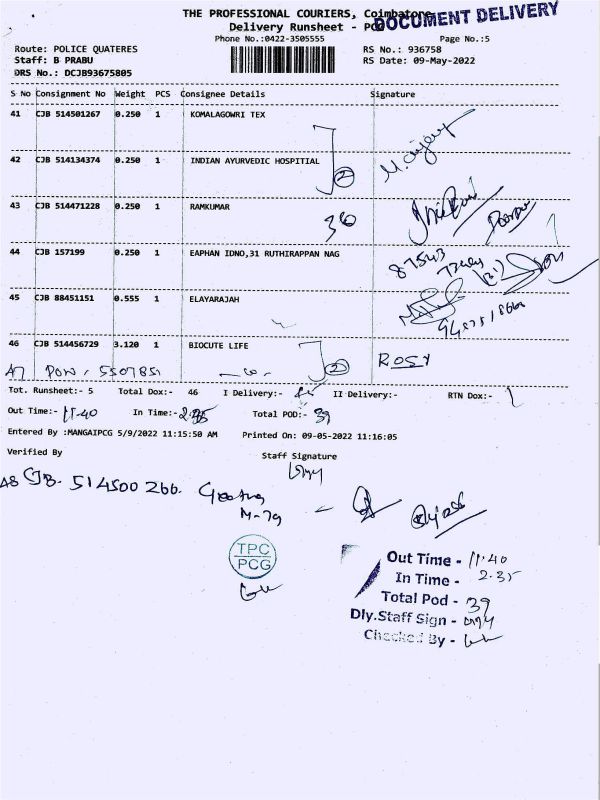 THE PROFESSIONAL COURIERS, Coimbatore
DOCUMENT DELIVERY
Delivery Runsheet - PCG
Phone No.:0422-3505555
Page No.:5
Route: POLICE QUATERES
RS No.: 936758
Staff: B PRABU
RS Date: 09-May-2022
DRS No.: DCJB93675805
S No Consignment No Weight PCS Consignee Details Signature
41 CJB 514501267 0.250 1 KOMALAGOWRI TEX
42 CJB 514134374 0.250 1 INDIAN AYURVEDIC HOSPITIAL
2
43 CJB 514471228 0.250 1 RAMKUMAR
36
44 CJB 157199 0.250 1 EAPHAN IDNO,31 RUTHIRAPPAN NAG
87543
45 CJB 88451151 0.555 1 ELAYARAJAH
46 CJB 514456729 3.120 1 BIOCUTE LIFE
2 ROSY
47
Tot. Runsheet:- 5 Total Dox:- 46 I Delivery:- 45 II Delivery:- RTN Dox:- 1
Out Time:- 11.40 In Time:- 2.35 Total POD:- 39
Entered By :MANGAIPCG 5/9/2022 11:15:50 AM Printed On: 09-05-2022 11:16:05
Verified By Staff Signature
48 CJB. 514500266.
M-79
TPC
PCG
Out Time - 11.40
In Time - 2.35
Total Pod - 39
Dly.Staff Sign -
Checked By -